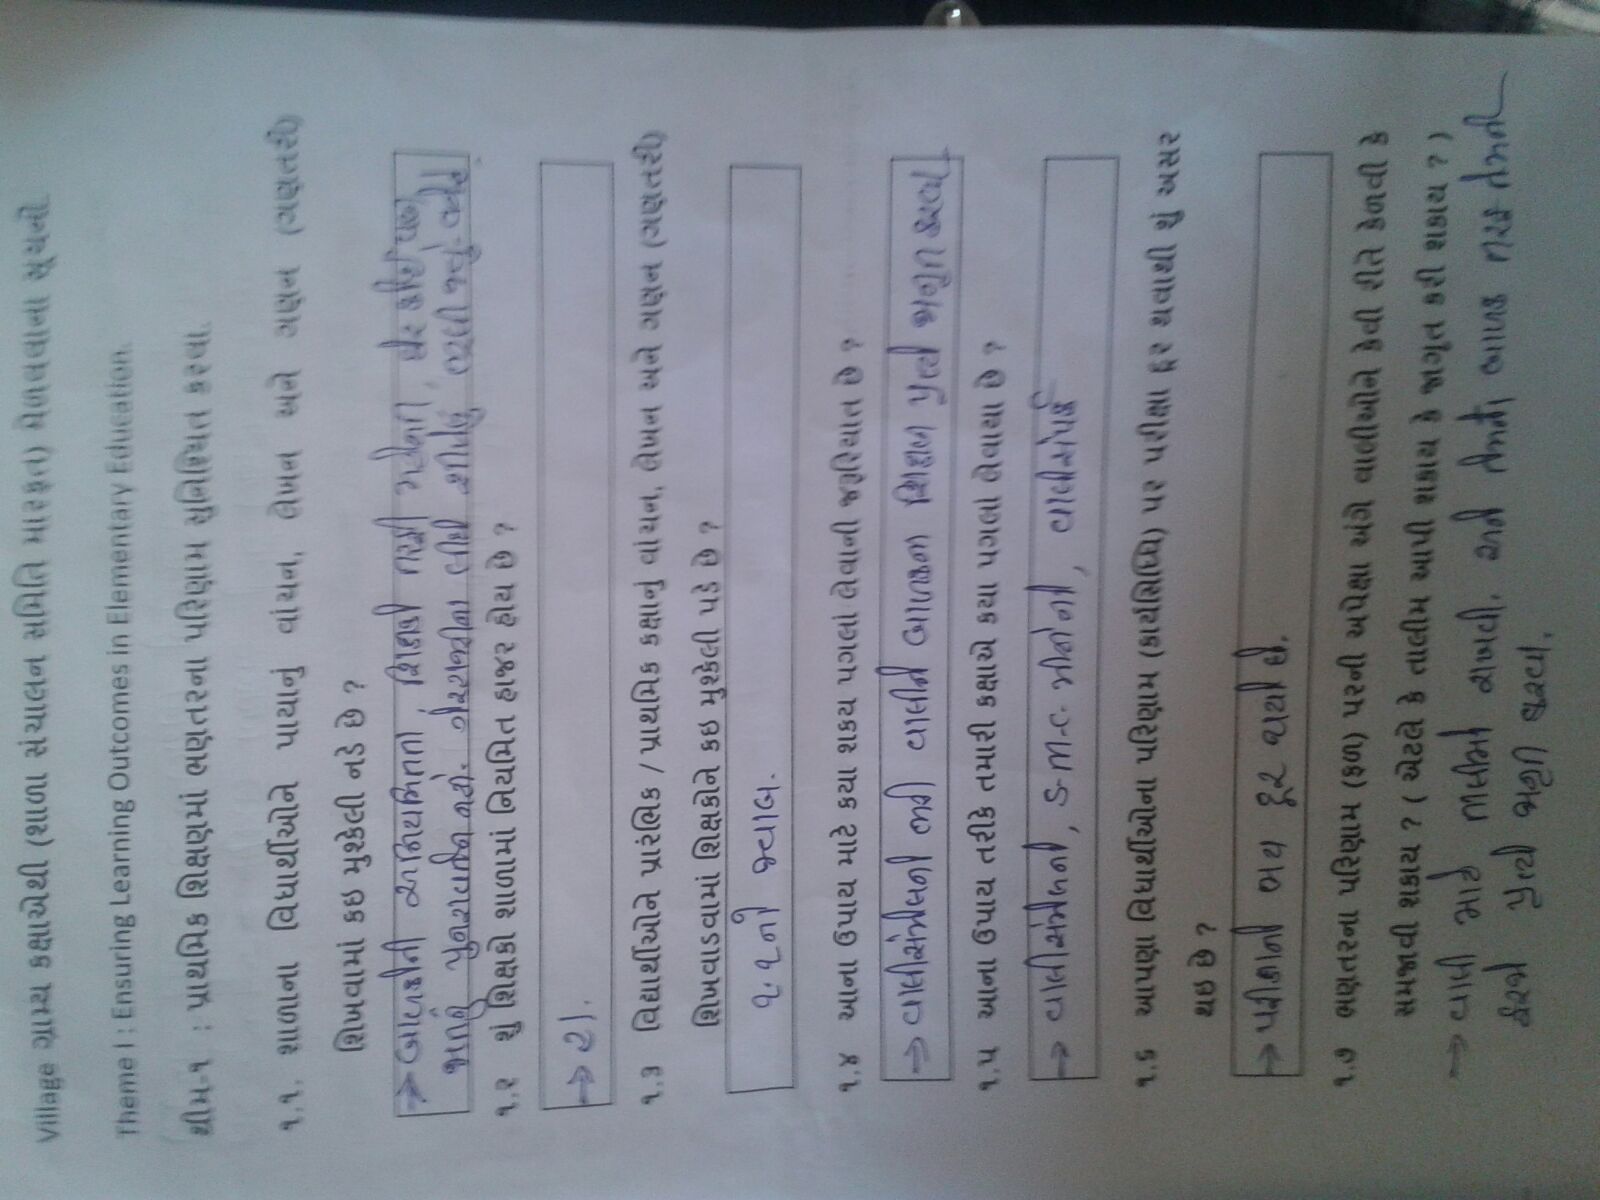 Village ગ્રામ્ય કક્ષાએથી (શાળા સંચાલન સમિતિ મારફત) મેળવવાના સૂચનો
Theme I : Ensuring Learning Outcomes in Elementary Education.
થીમ-૧ : પ્રાથમિક શિક્ષણમાં ભણતરના પરિણામ સુનિશ્ચિત કરવા.
૧.૧. શાળાના વિધાર્થીઓને પાયાનું વાંચન, લેખન અને ગણન (ગણતરી)
શિખવામાં કઇ મુશ્કેલી નડે છે ?
→ બાળકોની અનિયમિતતા, શિક્ષકો
૧.૨ શું શિક્ષકો શાળામાં નિયમિત હાજર હોય છે ?
→ હા.
૧.૩ વિદ્યાર્થીઓને પ્રારંભિક / પ્રાથમિક કક્ષાનું વાંચન, લેખન અને ગણન (ગણતરી)
શિખવાડવામાં શિક્ષકોને કઇ મુશ્કેલી પડે છે ?
૧.૧નો જવાબ.
૧.૪ આના ઉપાય માટે કયા શકય પગલાં લેવાની જરૂરિયાત છે ?
→ વાલીસંમેલનો ભરી વાલીને બાળકના શિક્ષણ પ્રત્યે જાગૃત કરવા
૧.૫ આના ઉપાય તરીકે તમારી કક્ષાએ કયા પગલા લેવાયા છે ?
→ વાલીસંમેલનો, S.M.C. મીટીંગો, વાલીસંપર્ક
૧.૬ આપણા વિધાર્થીઓના પરિણામ (કાર્યસિધ્ધિ) પર પરીક્ષા દૂર થવાથી શું અસર
થઇ છે ?
→ પરીક્ષાનો ભય દૂર થયો છે.
૧.૭ ભણતરના પરિણામ (ફળ) પરની અપેક્ષા અંગે વાલીઓને કેવી રીતે કેળવી કે
સમજાવી શકાય ? ( એટલે કે તાલીમ આપી શકાય કે જાગૃત કરી શકાય ? )
→ વાલી માટે તાલીમો રાખવી. અને તેમને બાળક તરફ તેમની
ફરજો પ્રત્યે જાગૃત કરવા.